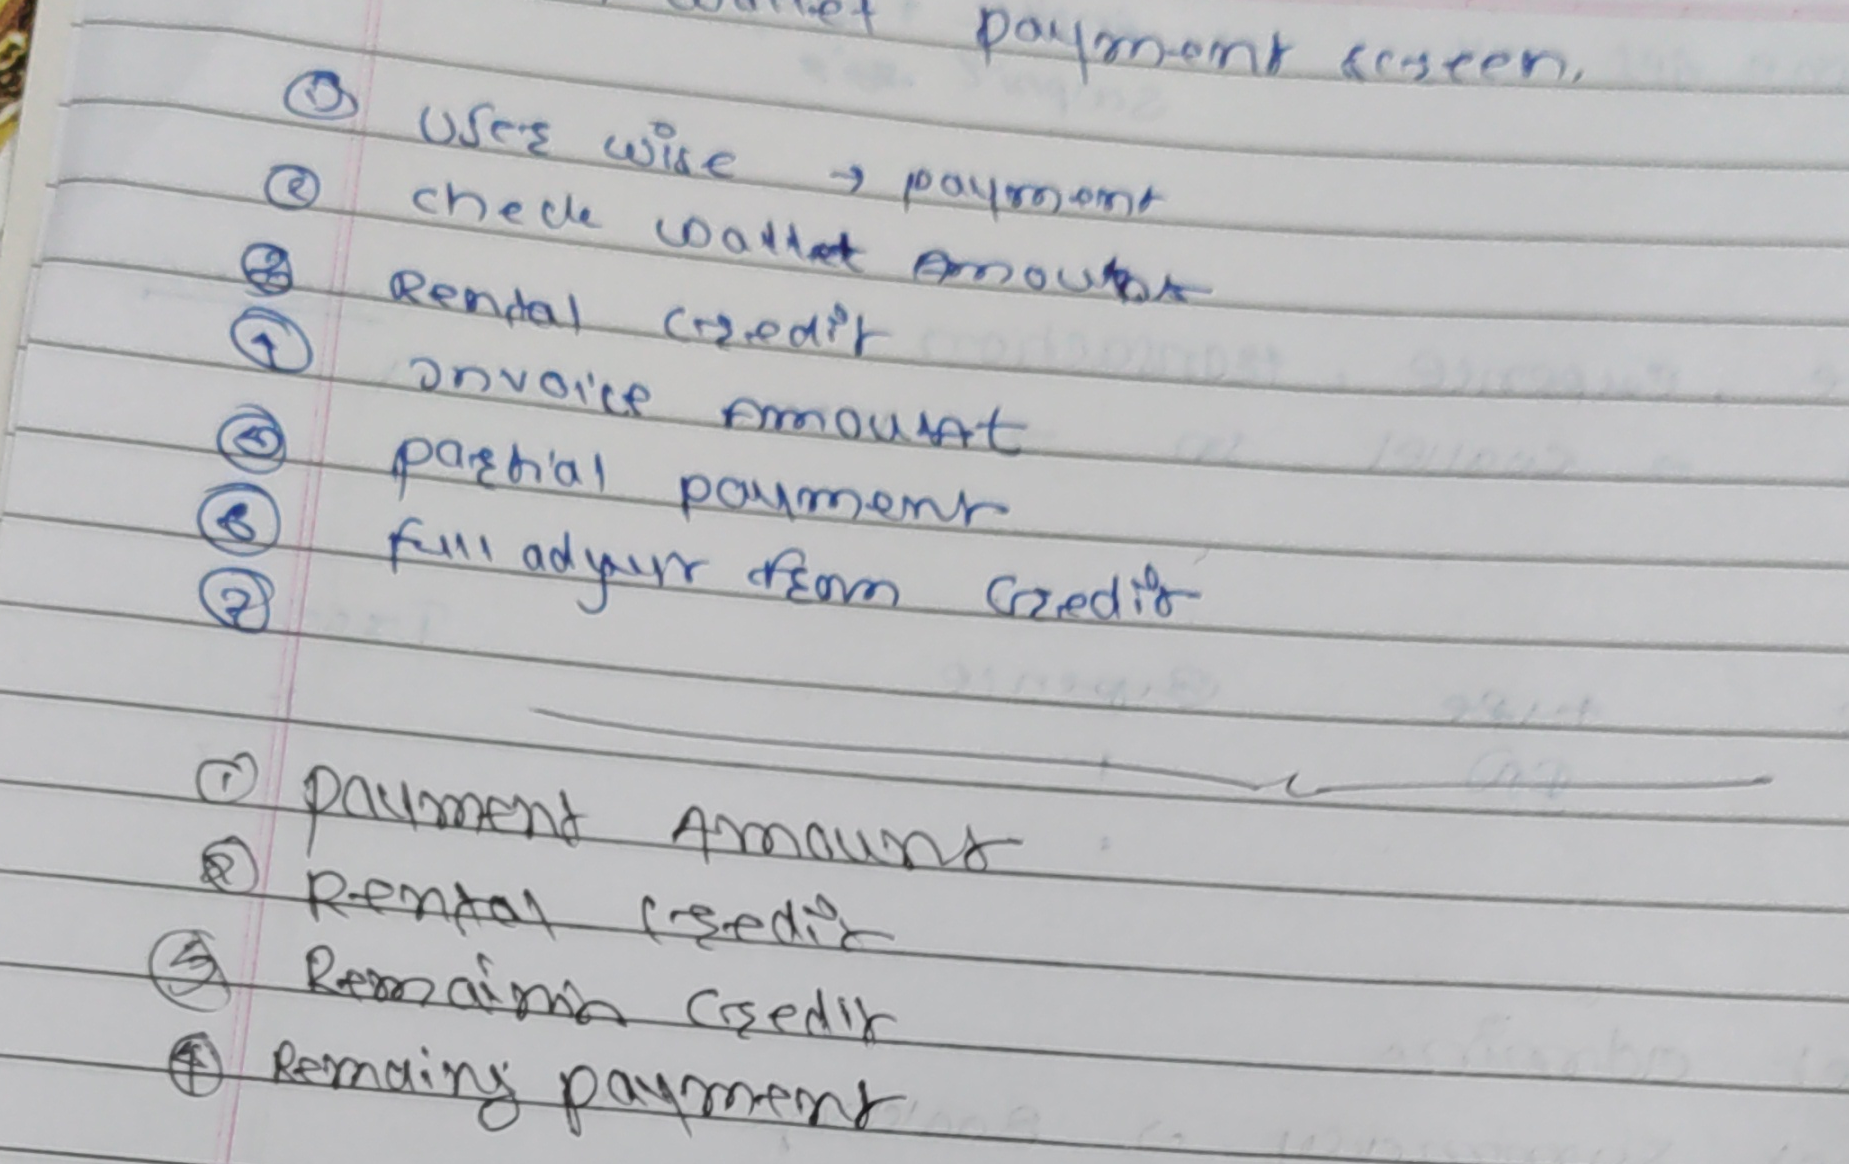 wallet payment screen.
① User wise → payment
② check wallet Amount
③ Rental credit
④ Invoice Amount
⑤ partial payment
⑥ full adjust from credit
⑦
① Payment Amount
② Rental credit
③ Remainin credit
④ Remaing payment